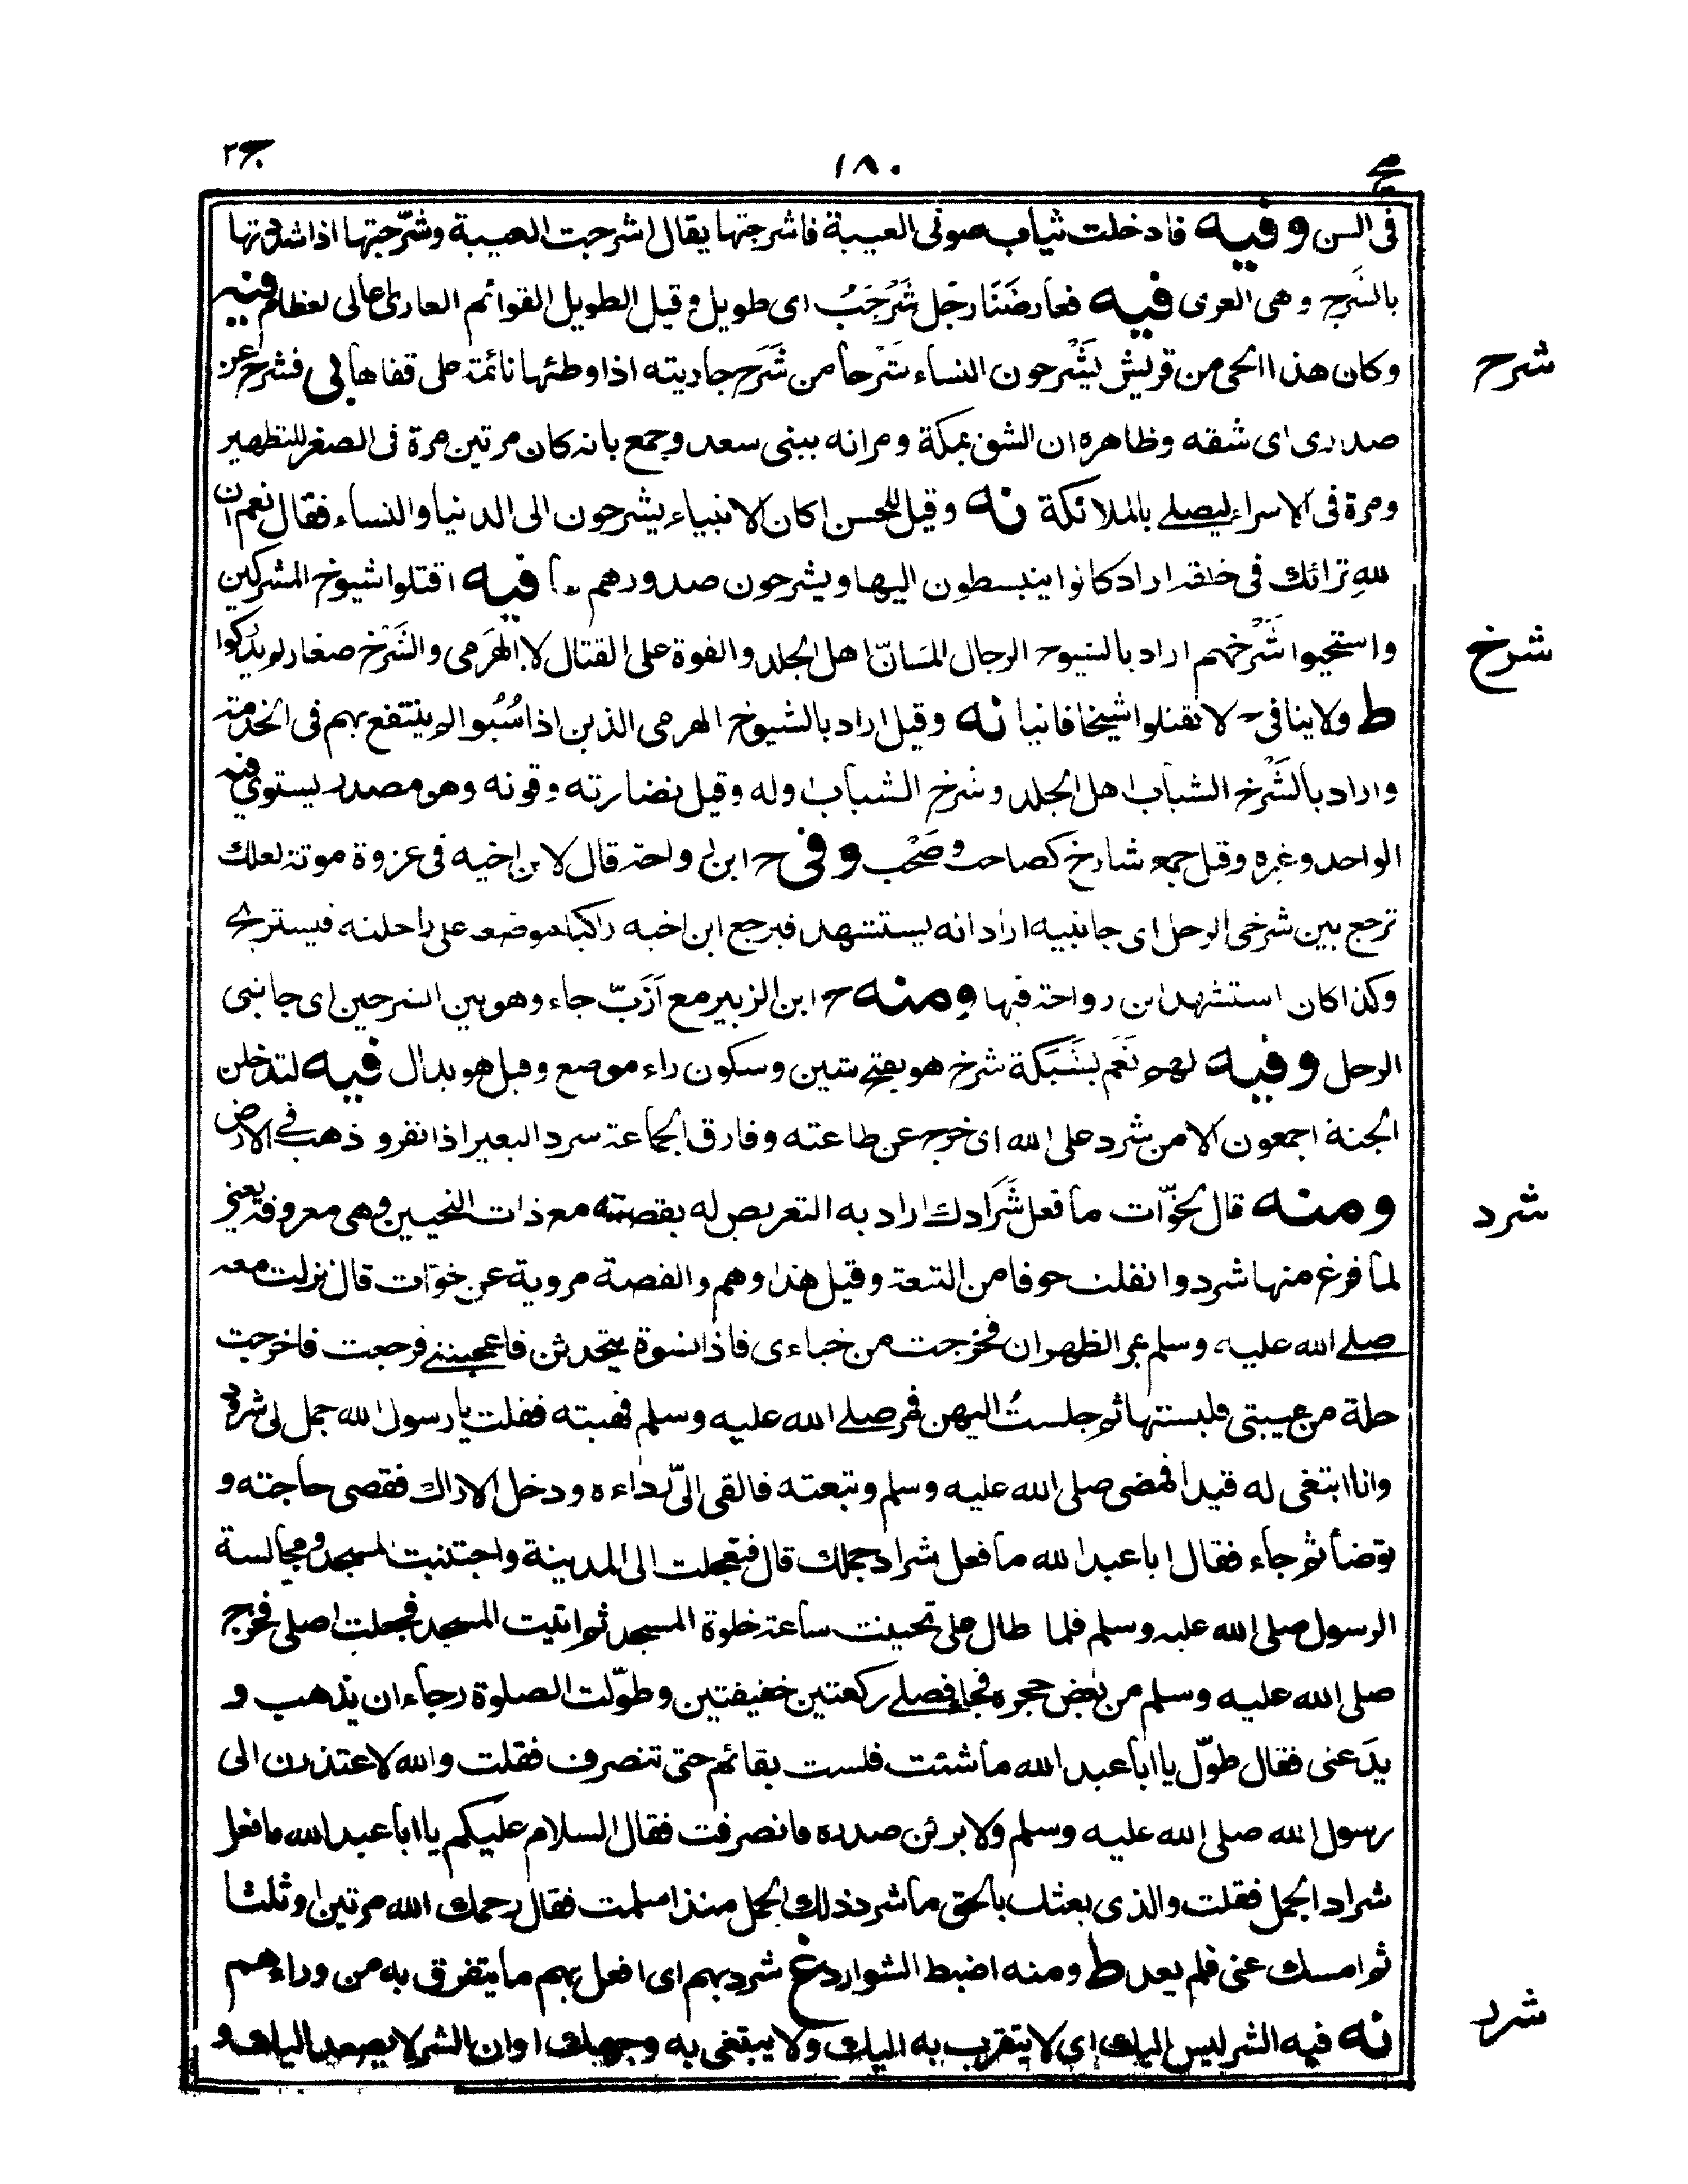 ج٢
١٨٠
في السن وفيه فادخلت ثياب صوفى العيبة فاشرجتها يقال اشرجت العيبة وشرّجتها اذا شددتها
بالشَرج وهى العرى فيه فعارضَنَا رجل شَرْجَبُ اى طويل وقيل الطويل القوائم العارى اعالى لعظام فيه
شرح
وكان هذا الحى من قريش يَشْرحون النساء شَرْحا من شَرَح جاريته اذا وطئها نائمة على قفاها فشرح عن
صدرى اى شقه وظاهره ان الشق بمكة ومر انه ببنى سعد وجمع بانه كان مرتين مرة فى الصغر للتطهير
ومرة فى الاسراء ليصلى بالملائكة نه وقيل للحسن اكان الانبياء يشرحون الى الدنيا والنساء فقال نعم ان
لله ترائك فى خلقه اراد كانوا ينبسطون اليها ويشرحون صدورهم فيه اقتلوا شيوخ المشركين
شرخ
واستحيوا شَرْخهم اراد بالشيوخ الرجال المَسَانّ اهل الجلد والقوة على القتال لا الهَرمى والشَرْخ صغار لم يدركوا
ط ولا ينافى ح لا تقتلوا شيخا فانيا نه وقيل اراد بالشيوخ الهرمى الذين اذا سُبُوا لم ينتفع بهم فى الخدمة
واراد بالشَرْخ الشباب اهل الجلد وشرخ الشباب اوله وقيل نضارته وقوته وهو مصدر يستوى فيه
الواحد وغيره وقيل جمع شارخ كصاحب وصَحْب وفى ح ابن رواحة قال لابن اخيه فى غزوة موتة لعلك
ترجع بين شرخى الرحل اى جانبيه اراد انه يستشهد فيرجع ابن اخيه راكبا موضعه على راحلته فيستريح
وكذا كان استشهد ابن رواحة فيها ومنه ح ابن الزبير مع اَزَبّ جاء وهو بين الشرخين اى جانبى
الرحل وفيه لهم نَعَم بشَبَكة شرخ هو بفتح شين وسكون راء موضع وقيل هو بدال فيه لتدخلن
الجنة اجمعون الا من شرد على الله اى خرج عن طاعته وفارق الجماعة شرد البعير اذا نفر و ذهب فى الارض
شرد
ومنه قال لخوّات ما فعل شَرَادك اراد به التعريض له بقصته مع ذات النحيين وهى معروفة يعنى
لما فرغ منها شرد وانفلت خوفا من التبعة وقيل هذا وهم والقصة مروية عن خوّات قال نزلت معه
صلى الله عليه وسلم بمر الظهران فخرجت من خباءى فاذا نسوة يتحدثن فاعجبننى فرجعت فاخرجت
حلة من عيبتى فلبستها ثم جلستُ اليهن فمر صلى الله عليه وسلم فهبته فقلت يا رسول الله جمل لى شرود
وانا ابتغى له قيدا فمضى صلى الله عليه وسلم وتبعته فالقى الىّ رداءه ودخل الاراك فقضى حاجته و
توضأ ثم جاء فقال ابا عبد الله ما فعل شراد جملك قال فتعجلت الى المدينة واجتنبت المسجد ومجالسة
الرسول صلى الله عليه وسلم فلما طال على تحينت ساعة خلوة المسجد ثم اتيت المسجد فجعلت اصلى فخرج
صلى الله عليه وسلم من بعض حجره فجاء فصلى ركعتين خفيفتين وطوّلت الصلوة رجاء ان يذهب و
يدَعنى فقال طوّل يا ابا عبد الله ما شئت فلست بقائم حتى تنصرف فقلت والله لاعتذرن الى
رسول الله صلى الله عليه وسلم ولابرئن صدره فانصرفت فقال السلام عليكم يا ابا عبد الله ما فعل
شراد الجمل فقلت والذى بعثك بالحق ما شرد ذلك الجمل منذ اسلمت فقال رحمك الله مرتين او ثلثا
ثم امسك عنى فلم يعد ط ومنه اضبط الشوارد غ شرد بهم اى افعل بهم ما يتفرق به من وراءهم
شرر
نه فيه الشر ليس اليك اى لا يتقرب به اليك ولا يبتغى به وجهك او ان الشر لا يصعد اليك و